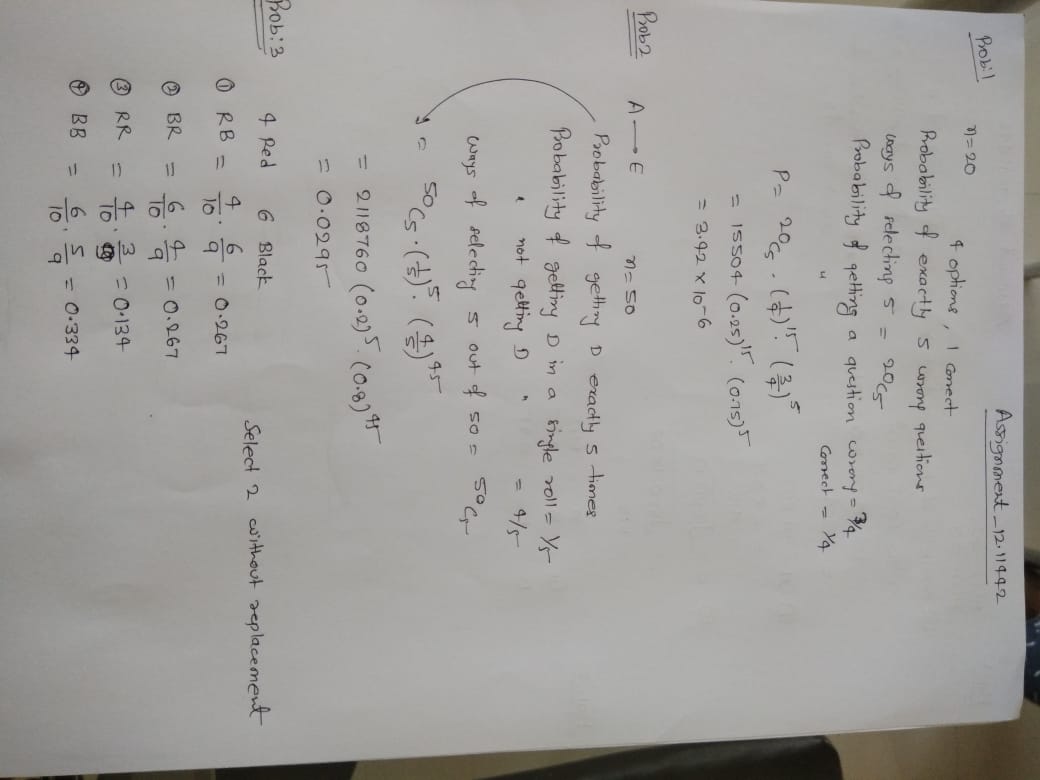 Assignment_12.11442
Prob:1
n=20 4 options, 1 correct
Probability of exactly 5 wrong questions
ways of selecting 5 = 20C5
Probability of getting a question wrong = 3/4
" correct = 1/4
P = 20C5 . (1/4)^15 . (3/4)^5
= 15504 (0.25)^15 . (0.75)^5
= 3.42 x 10^-6
Prob2 A → E n=50
Probability of getting D exactly 5 times
Probability of getting D in a single roll = 1/5
" not getting D " = 4/5
ways of selecting 5 out of 50 = 50C5
= 50C5 . (1/5)^5 . (4/5)^45
= 2118760 (0.2)^5 . (0.8)^45
= 0.0295
Prob:3 4 Red 6 Black Select 2 without replacement
① RB = 4/10 . 6/9 = 0.267
② BR = 6/10 . 4/9 = 0.267
③ RR = 4/10 . 3/9 = 0.134
④ BB = 6/10 . 5/9 = 0.334